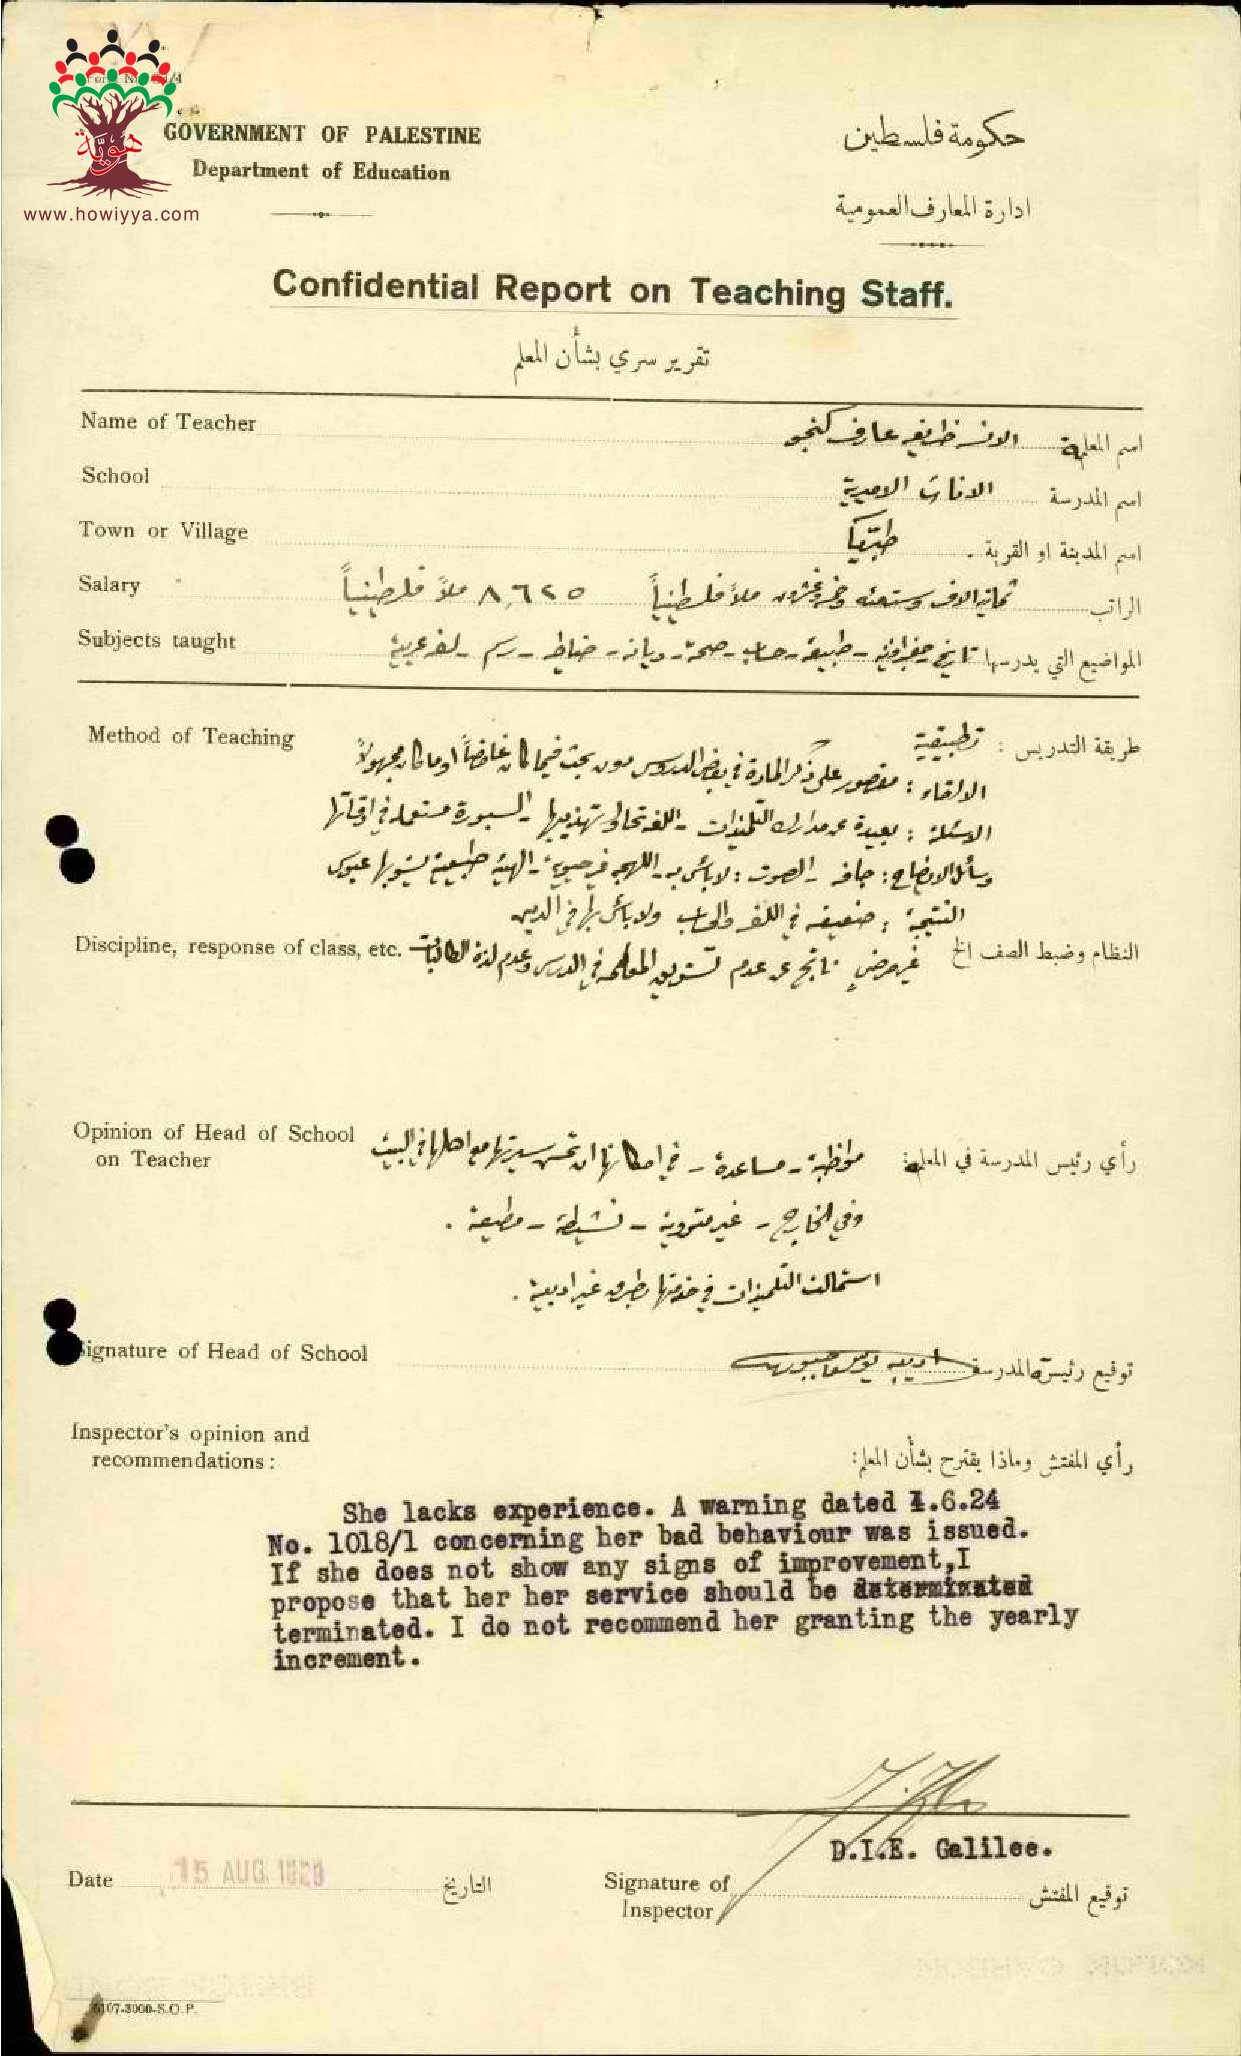 هوية
www.howiyya.com
GOVERNMENT OF PALESTINE
Department of Education
حكومة فلسطين
ادارة المعارف العمومية
Confidential Report on Teaching Staff.
تقرير سري بشأن المعلم
Name of Teacher الانسة ظريفه عارف كنجو اسم المعلمة
School الاناث الاميرية اسم المدرسة
Town or Village طبريا اسم المدينة او القرية
Salary ثمانية الاف وستمئه وخمسة وعشرون ملاً فلسطينياً ٨٦٢٥ ملاً فلسطينياً الراتب
Subjects taught تاريخ - جغرافية - طبيعة - حساب - صحة - ديانة - خياطة - رسم - لغة عربية المواضيع التي يدرسها
Method of Teaching
طريقة التدريس : تطبيقية
الالقاء : مقصور على ذكر المادة في بعض الدروس دون بحث فيما كان غامضاً او ما كان مجهولاً
الاسئلة : بعيدة عن مدارك التلميذات - اللغة تحاول تهذيبها - السبورة مستعمله في اوقاتها
وسائل الايضاح : جافه - الصوت : لا بأس به - اللهجه غير حيوية - الهيئة طبيعية يشوبها عبوس
النتيجة : ضعيفه في اللغة والحساب ولا بأس بها في الدين
Discipline, response of class, etc. النظام وضبط الصف الخ غير مرضٍ ناتج عن عدم تشويق المعلمه في الدرس وعدم لذة الطالبات
Opinion of Head of School
on Teacher
رأي رئيس المدرسة في المعلمة: مواظبة - مساعدة - في امكانها ان تحسن سيرتها مع اهلها في البيت
وفي الخارج - غير متروية - نشيطة - مطيعة .
استمالت التلميذات في خدمتها بطرق غير ادبية .
Signature of Head of School اديبه يونس توقيع رئيسة المدرسة
Inspector's opinion and
recommendations :
رأي المفتش وماذا يقترح بشأن المعلم:
She lacks experience. A warning dated 1.6.24
No. 1018/1 concerning her bad behaviour was issued.
If she does not show any signs of improvement,I
propose that her her service should be determinated
terminated. I do not recommend her granting the yearly
increment.
D.I.E. Galilee.
Date 15 AUG. التاريخ
Signature of
Inspector
توقيع المفتش
6107-3000-S.O.P.